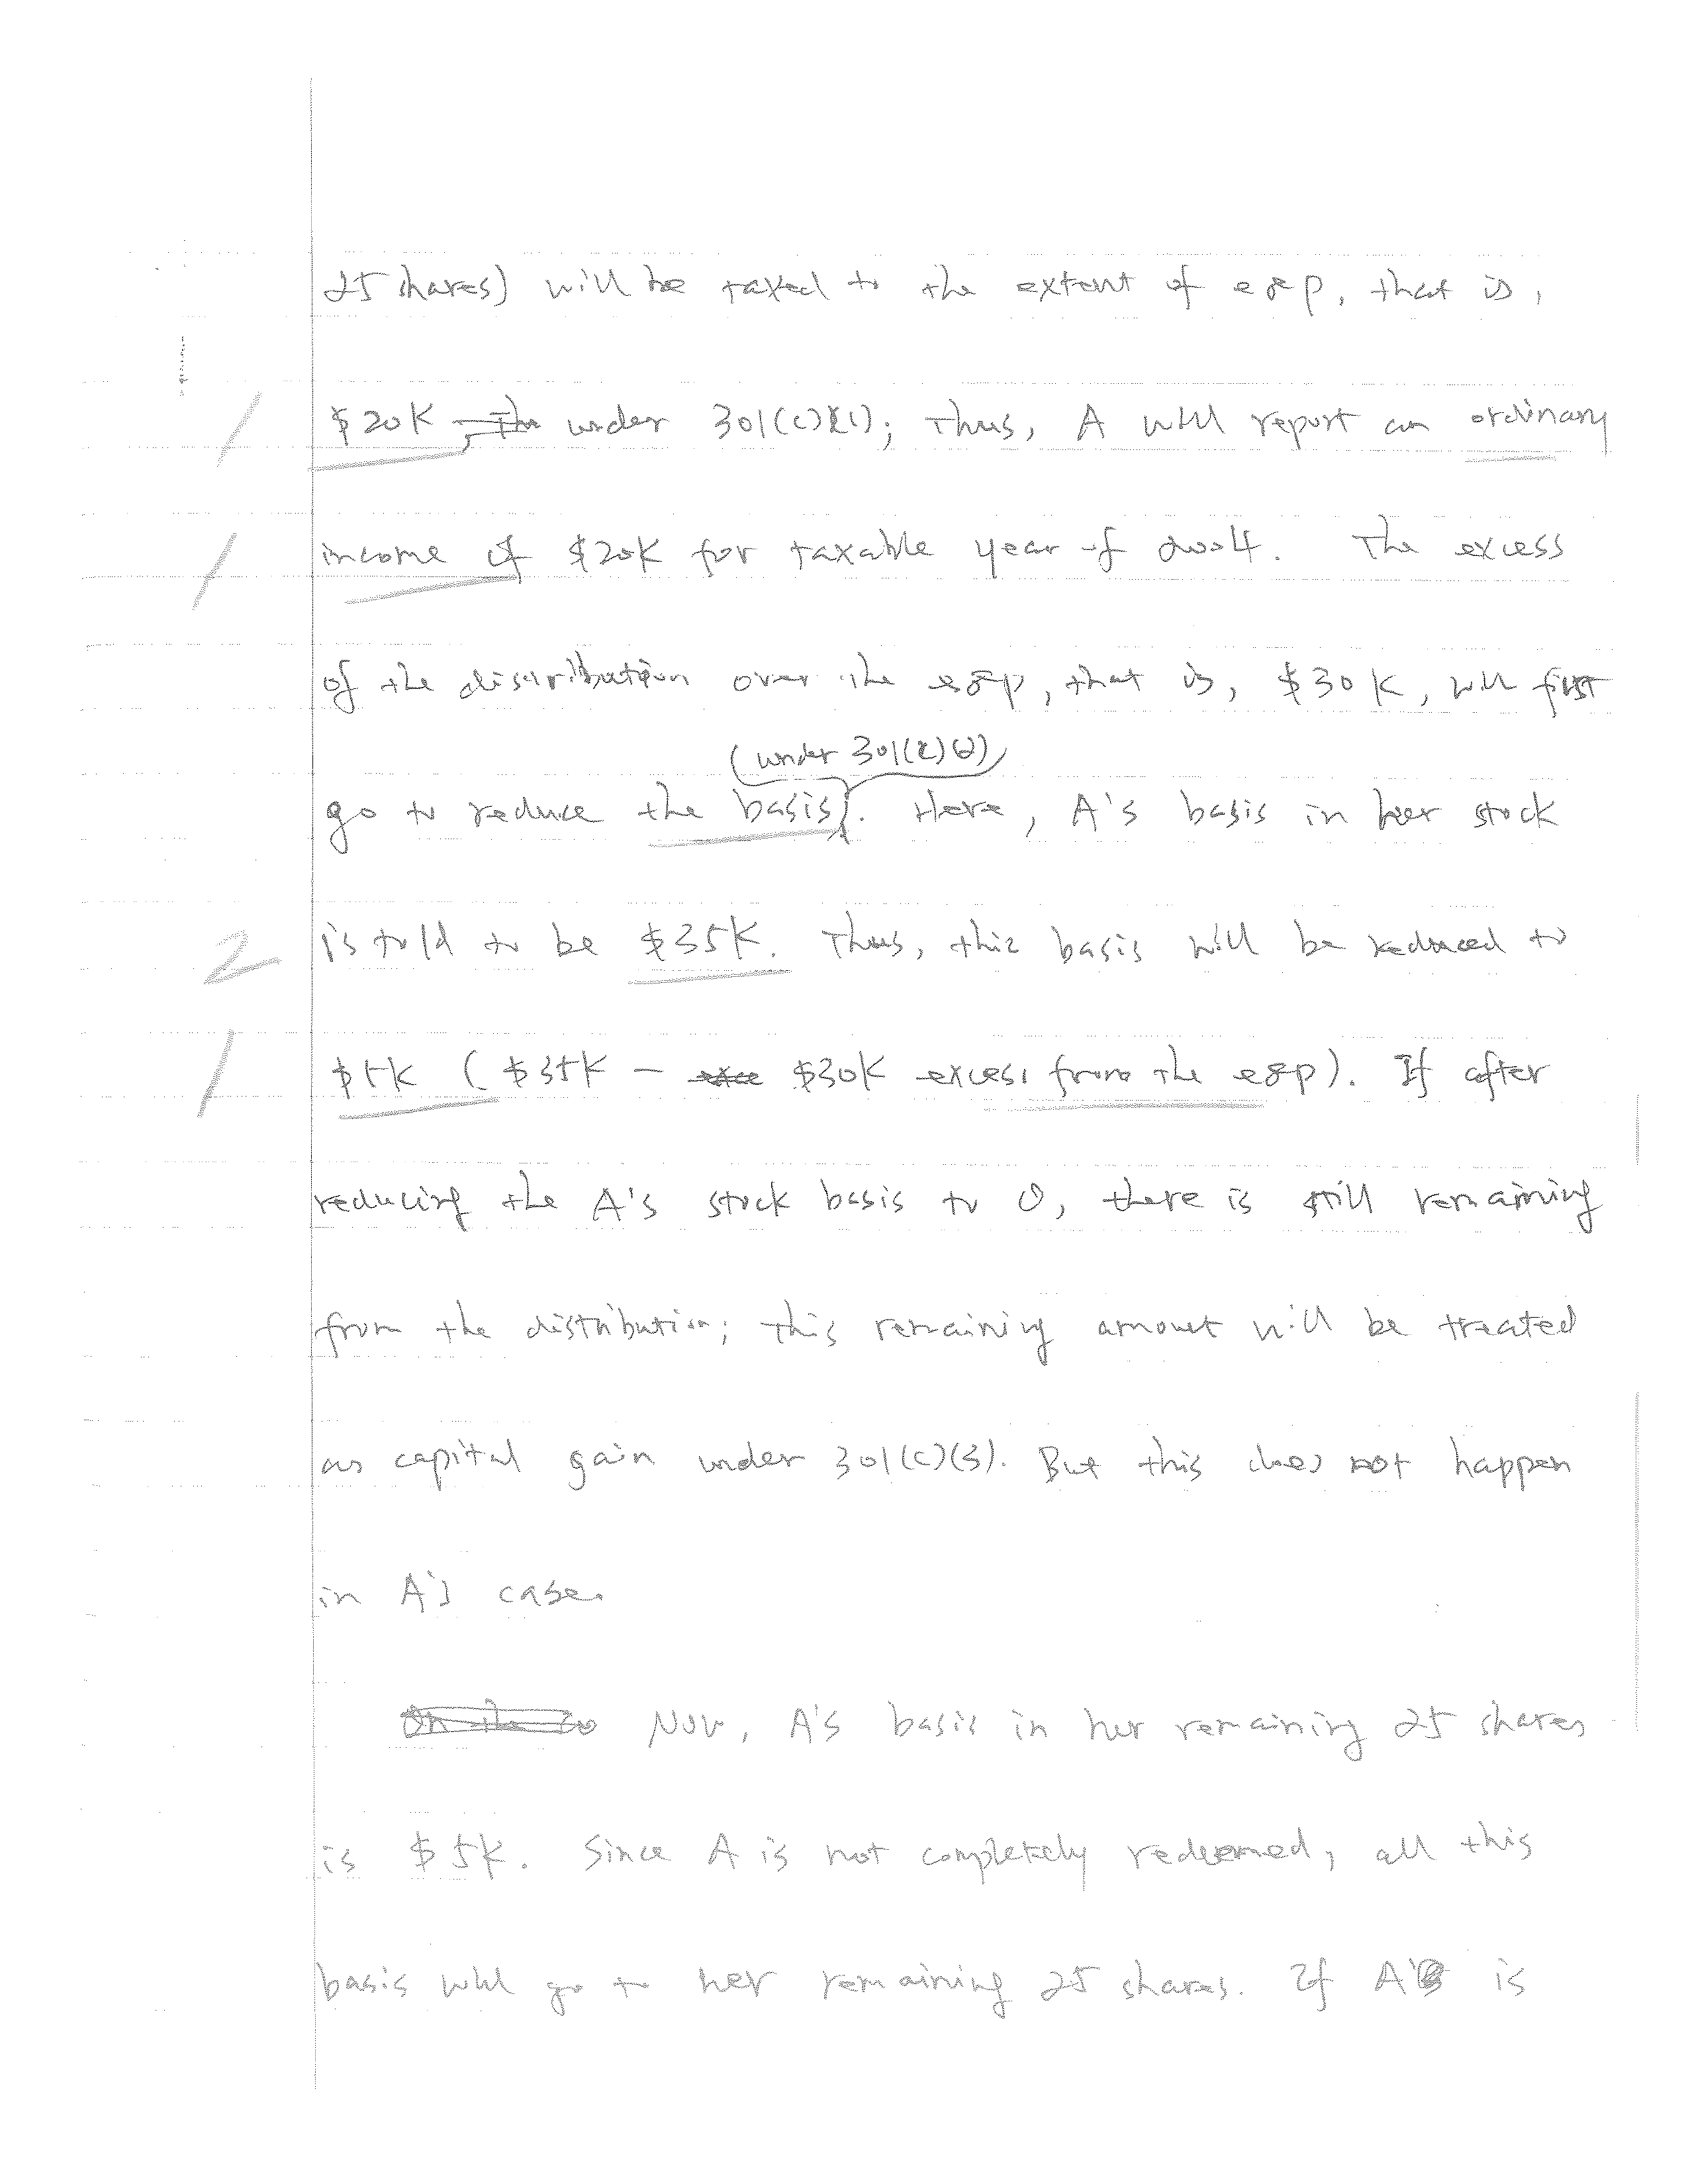 25 shares) will be taxed to the extent of e&p, that is,
/ $20K, The under 301(c)(1); Thus, A will report an ordinary
/ income of $20K for taxable year of 2004. The excess
of the distribution over the e&p, that is, $30K, will first
(under 301(c)(2))
go to reduce the basis. Here, A's basis in her stock
2 is told to be $35K. Thus, this basis will be reduced to
/ $5K ($35K - exce $30K excess from the e&p). If after
reducing the A's stock basis to 0, there is still remaining
from the distribution; this remaining amount will be treated
as capital gain under 301(c)(3). But this does not happen
in A's case.
On the co Now, A's basis in her remaining 25 shares
is $5K. Since A is not completely redeemed, all this
basis will go to her remaining 25 shares. If A is